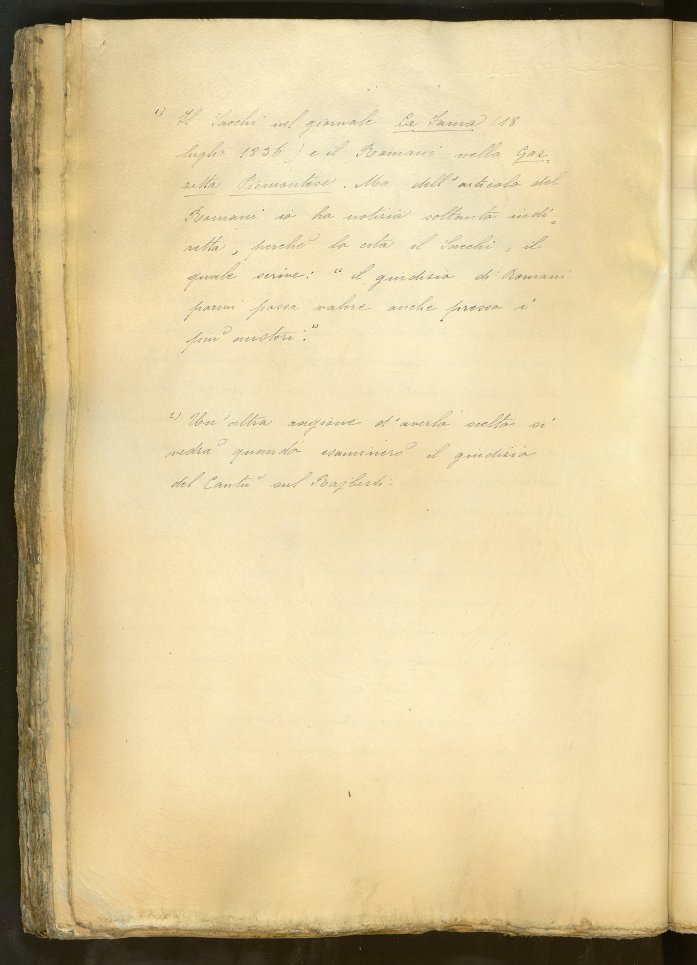 1) Il Sacchi nel giornale La Fama (18
luglio 1836) e il Romani nella Gaz-
zetta Piemontese. Ma dell'articolo del
Romani io ho notizia soltanto indi-
retta, perchè lo cita il Sacchi, il
quale scrive: "il giudizio di Romani
parmi possa valere anche presso i
più austeri."
2) Un'altra ragione d'averlo scelto si
vedrà quando esaminerò il giudizio
del Cantù sul Rajberti.